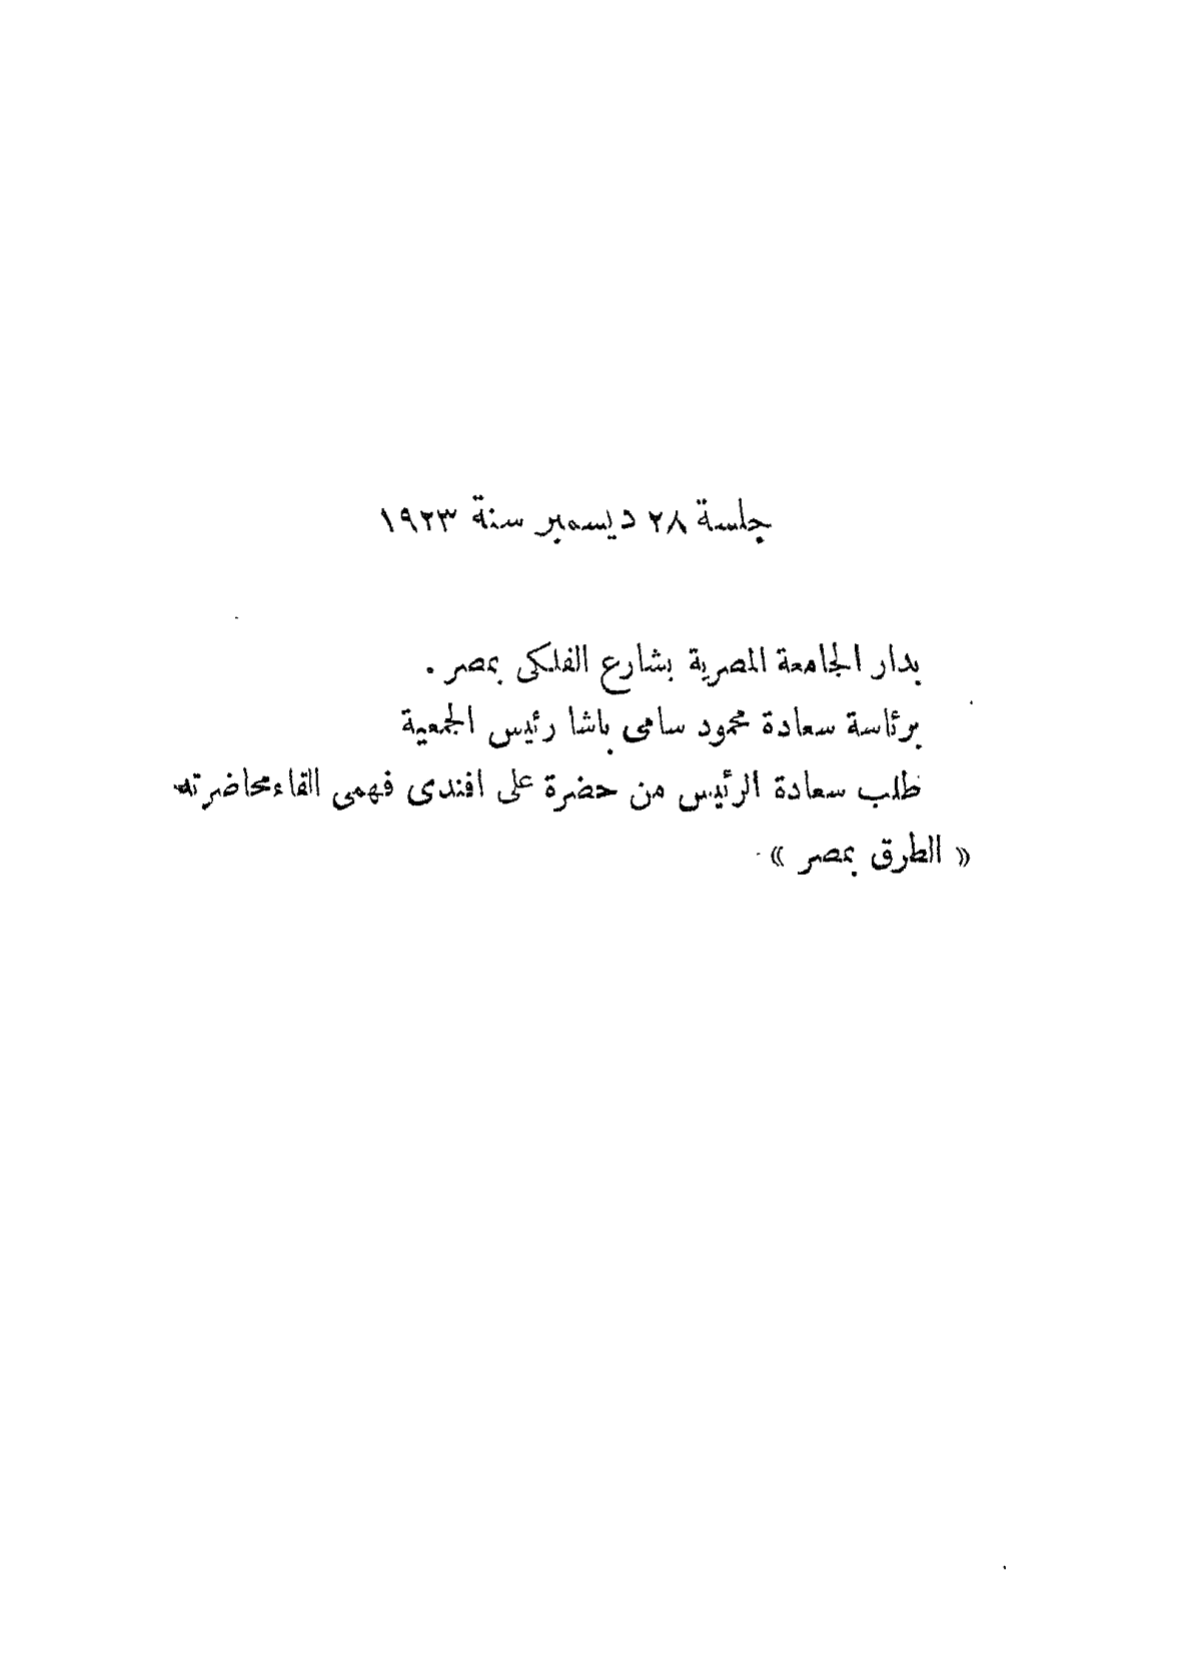 جلسة ٢٨ ديسمبر سنة ١٩٢٣
بدار الجامعة المصرية بشارع الفلكى بمصر .
برئاسة سعادة محمود سامى باشا رئيس الجمعية
طلب سعادة الرئيس من حضرة على افندى فهمى القاء محاضرته
« الطرق بمصر »